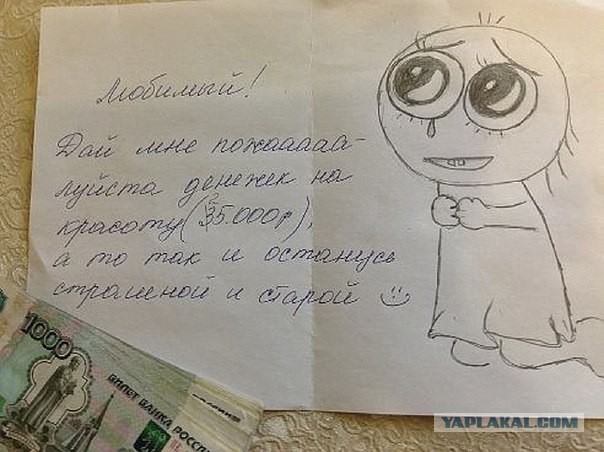 Любимый!
Дай мне пожааааа-
луйста денежек на
красоту(35.000р),
а то так и останусь
страшной и старой ☺
1000
БИЛЕТ БАНКА РОССИ
YAPLAKAL.COM